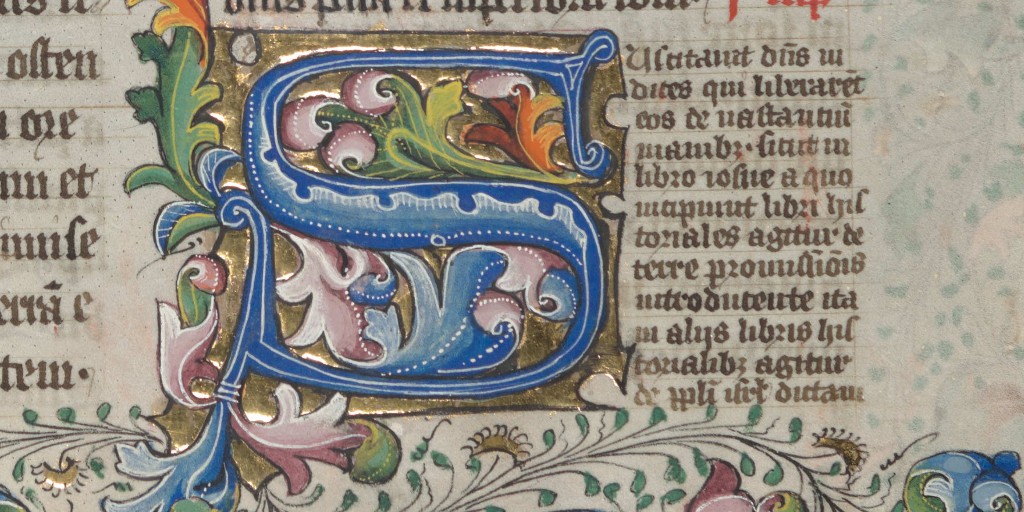 osten
ore
et
muise
terrā e
tem·
S
Uscitauit dn̄s iu
dices qui liberarēt
eos de uastantiū
manibꝫ· sicut in
libro iosue a quo
incipiunt libri his
toriales agitur de
terre promissiōis
introducente ita
in alijs libris his
torialibꝫ agitur
de ppl̄i isrl̄ dictam